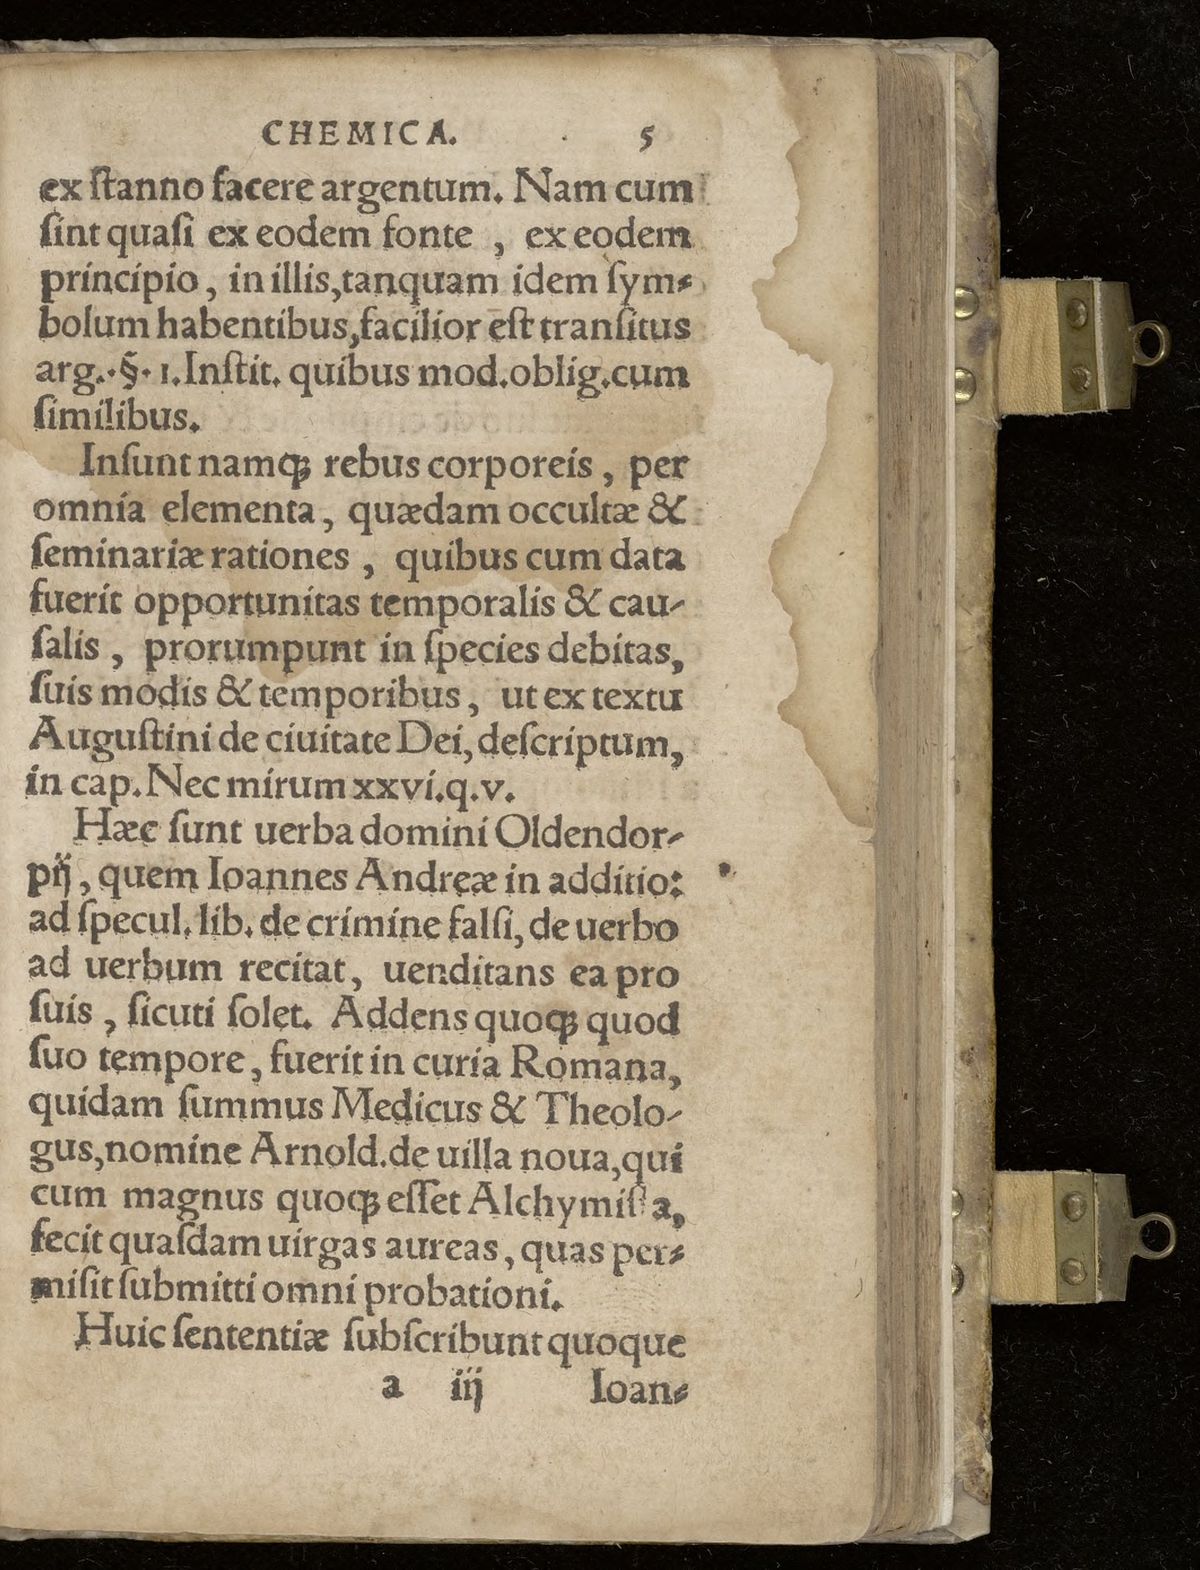 CHEMICA. 5
ex ſtanno facere argentum. Nam cum
ſint quaſi ex eodem fonte , ex eodem
principio , in illis,tanquam idem ſym⸗
bolum habentibus,facilior eſt tranſitus
arg..§. 1.Inſtit. quibus mod.oblig.cum
ſimilibus.
Inſunt namq́ꝫ rebus corporeis , per
omnia elementa , quædam occultæ &
ſeminariæ rationes , quibus cum data
fuerit opportunitas temporalis & cau-
ſalis , prorumpunt in ſpecies debitas,
ſuis modis & temporibus , ut ex textu
Auguſtini de ciuitate Dei, deſcriptum,
in cap. Nec mirum xxvi.q.v.
Hæc ſunt uerba domini Oldendor-
pij , quem Ioannes Andreæ in additio:
ad ſpecul. lib. de crimine falſi, de uerbo
ad uerbum recitat, uenditans ea pro
ſuis , ſicuti ſolet. Addens quoqꝫ quod
ſuo tempore , fuerit in curia Romana,
quidam ſummus Medicus & Theolo-
gus,nomine Arnold.de uilla noua,qui
cum magnus quoqꝫ eſſet Alchymiſta,
fecit quaſdam uirgas aureas , quas per⸗
miſit ſubmitti omni probationi.
Huic ſententiæ ſubſcribunt quoque
a iij Ioan⸗